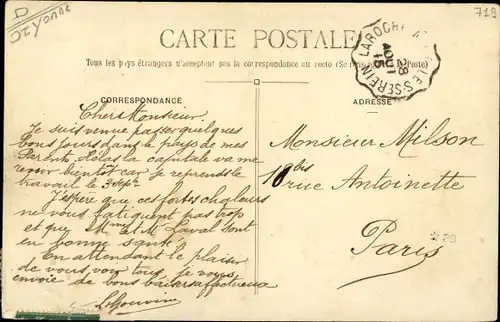 D
Yonne
719
CARTE POSTALE
Tous les pays étrangers n'acceptent pas la correspondance au recto (Se Poste)
LAROCHE LES SEREIN
28
AOUT
15
CORRESPONDANCE
ADRESSE
Cher Monsieur.
Je suis venue passer quelques
bons jours dans le pays de mes
Parents. Hélas la capitale va me
revoir bientôt car je reprends le
travail le 3 Sept.
J'espère que ces fortes chaleurs
ne vous fatiguent pas trop
et que Mme et M. Laval sont
en bonne santé.
En attendant le plaisir
de vous voir tous je vous
envoie de bons baisers affectueux
Monsieur Milson
18 bis
rue Antoinette
Paris